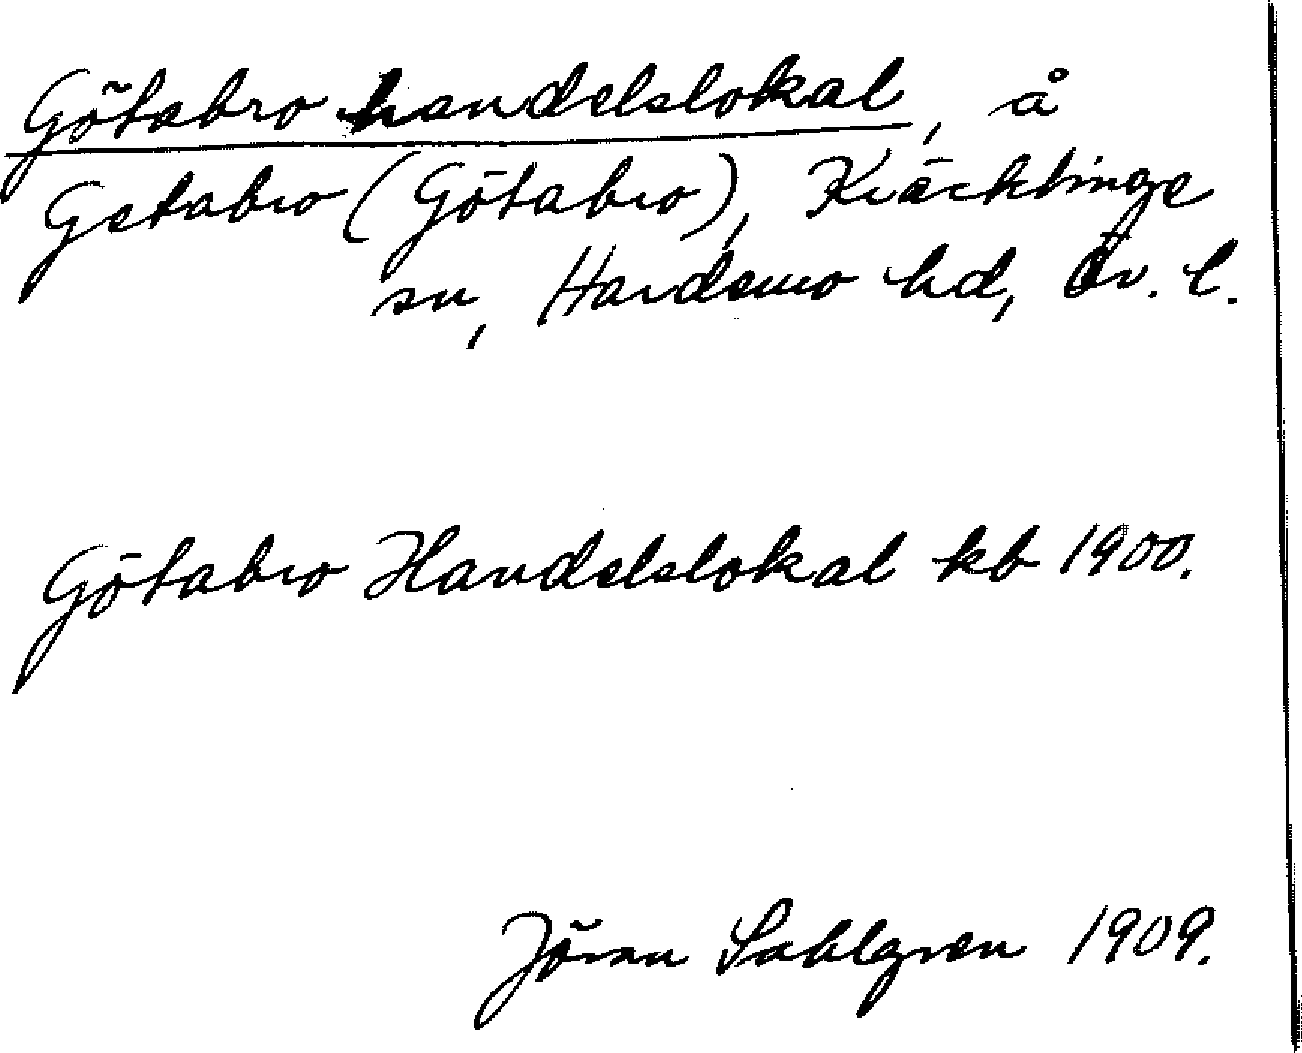 Götabro handelslokal, å
Getabro (Götabro), Kräcklinge
sn, Hardemo hd, Ör. l.
Götabro Handelslokal kb 1900.
Jöran Sahlgren 1909.